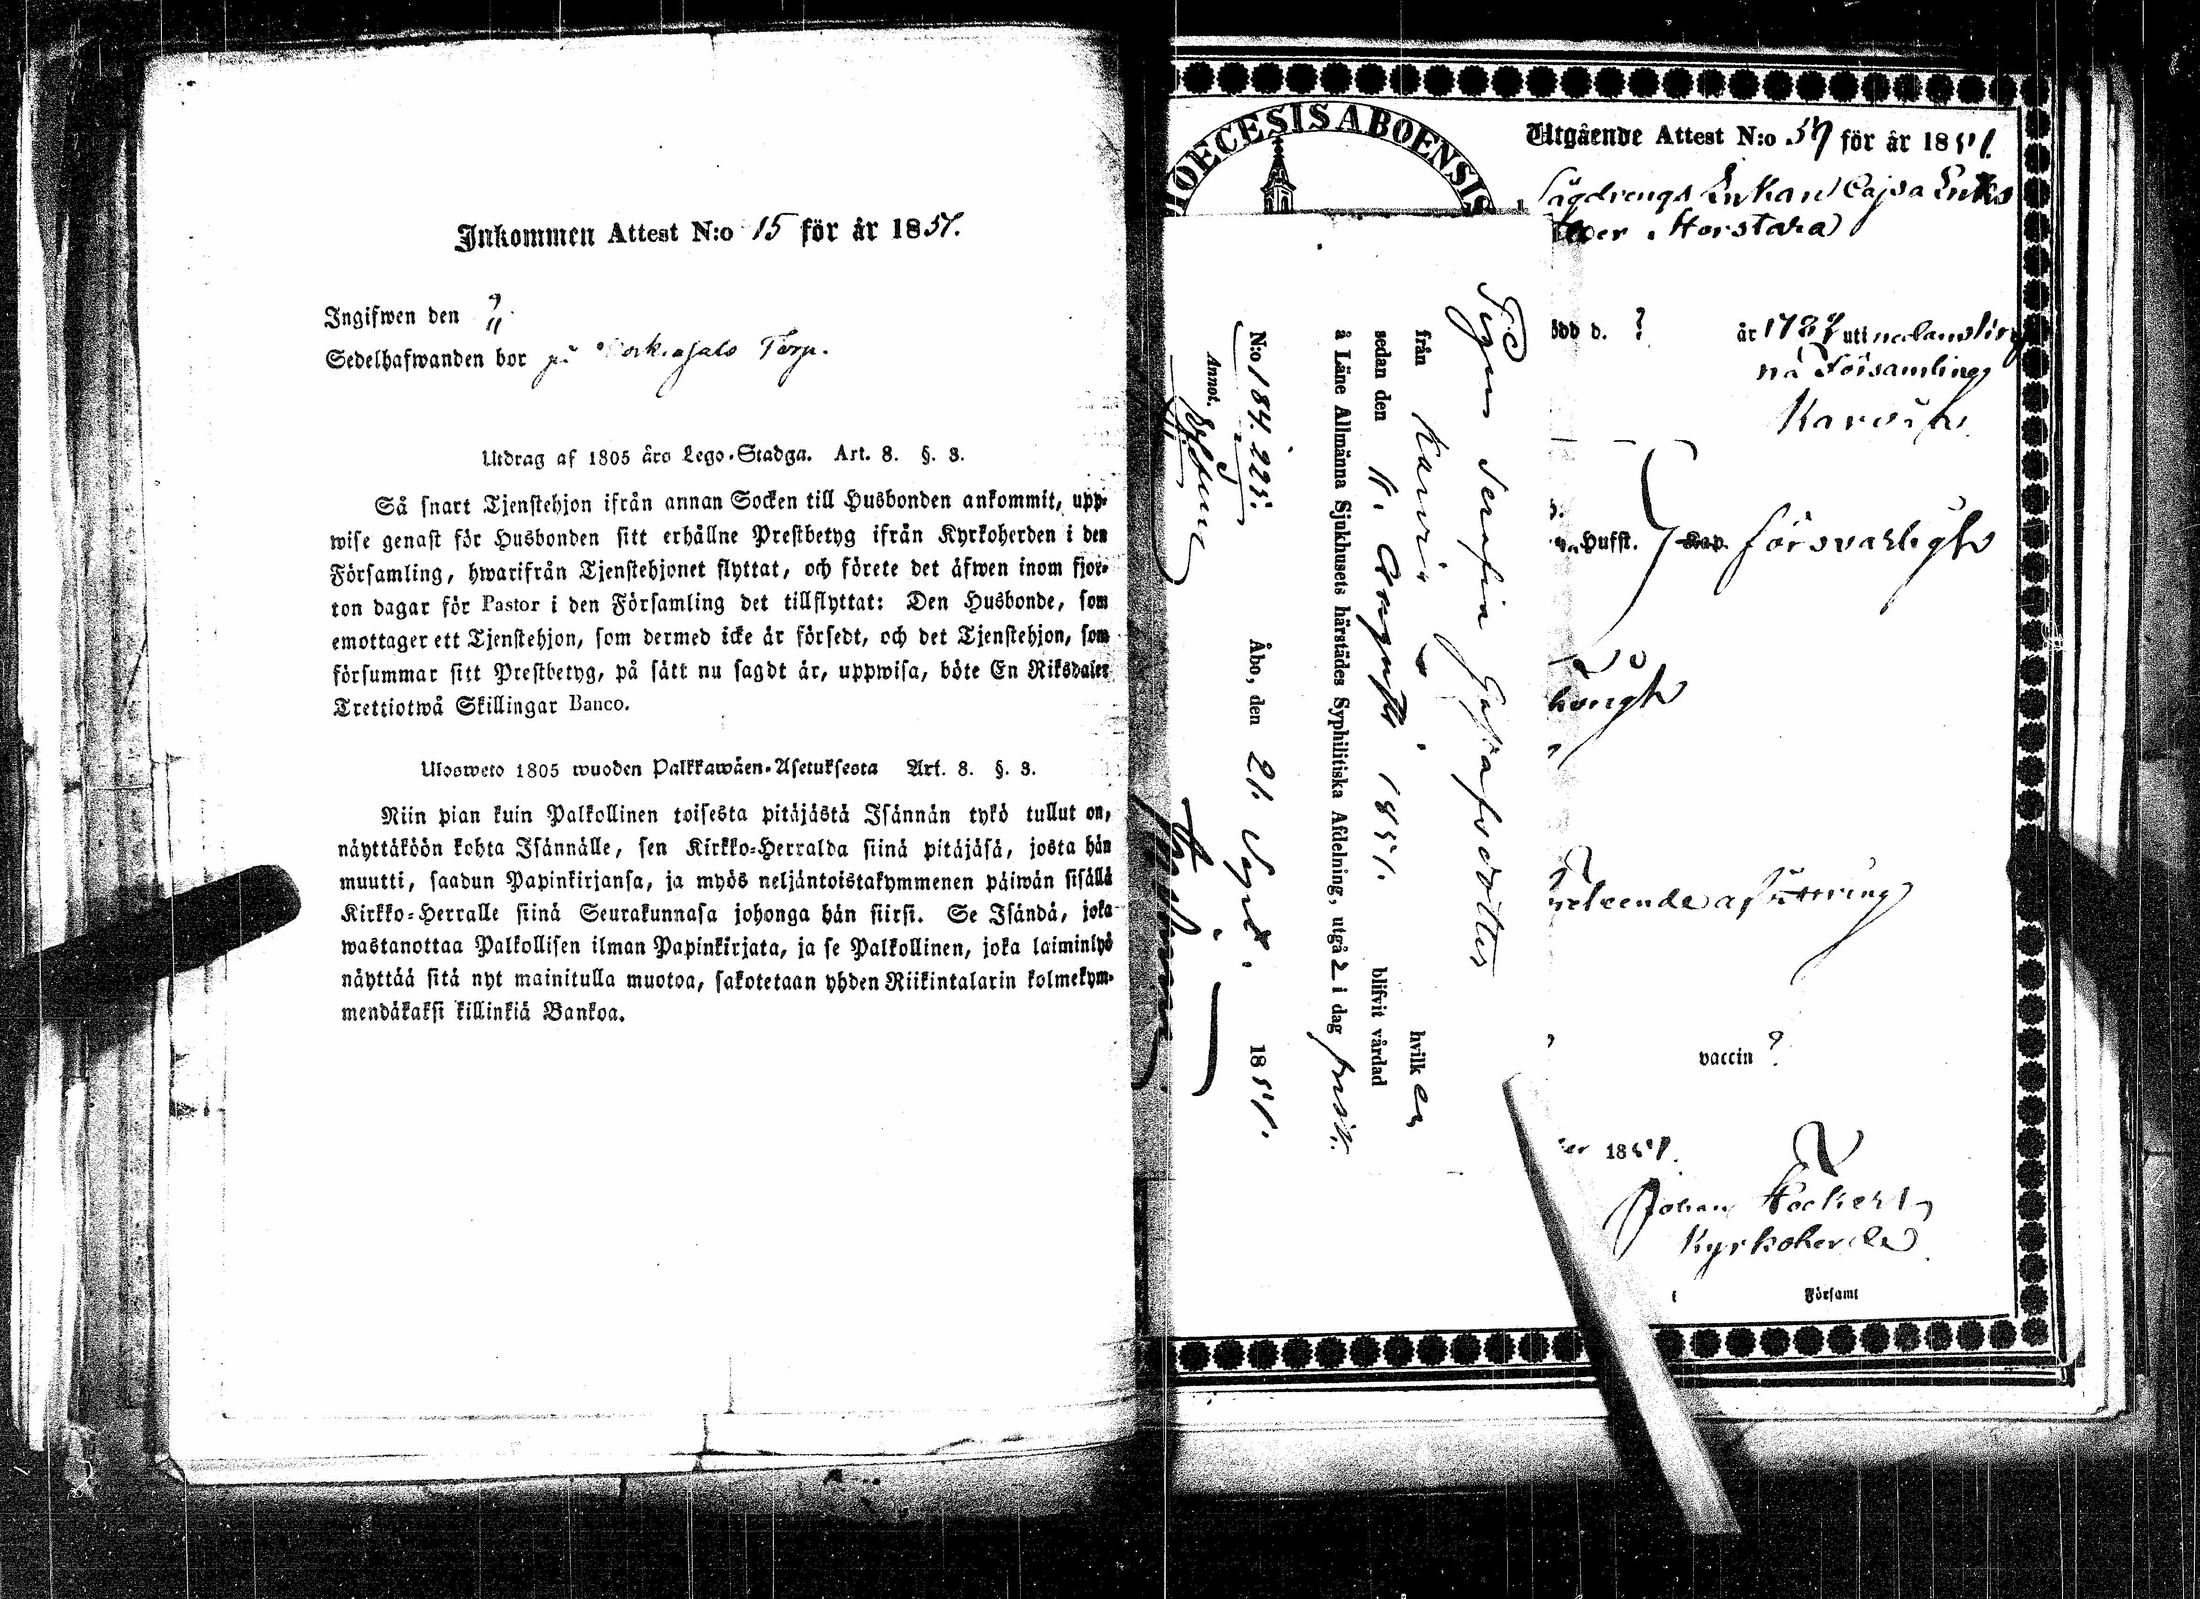 Inkommen Attest N:o 15 för år 1851.
Ingifwen den ?
Sedelhafwanden bor på Torp.
Utdrag af 1805 års Lego-Stadga. Art. 8. §. 3.
Så snart Tjenstehjon ifrån annan Socken till Husbonden ankommit, upp-
wise genast för Husbonden sitt erhållne Prestbetyg ifrån Kyrkoherden i den
Församling, hwarifrån Tjenstehjonet flyttat, och förete det äfwen inom fjor-
ton dagar för Pastor i den Församling det tillflyttat: Den Husbonde, som
emottager ett Tjenstehjon, som dermed icke är försedt, och det Tjenstehjon, som
försummar sitt Prestbetyg, på sätt nu sagdt är, uppwisa, böte En Riksdaler
Trettiotwå Skillingar Banco.
Ulosweto 1805 wuoden Palkkawäen-Asetuksesta Art. 8. §. 3.
Niin pian kuin Palkollinen toisesta pitäjästä Isännän tykö tullut on,
näyttäköön kohta Isännälle, sen Kirkko-Herralda siinä pitäjäsä, josta hän
muutti, saadun Papinkirjansa, ja myös neljäntoistakymmenen päiwän sisällä
Kirkko-Herralle siinä Seurakunnasa johonga hän siirsi. Se Isändä, joka
wastanottaa Palkollisen ilman Papinkirjata, ja se Palkollinen, joka laiminlyö
näyttää sitä nyt mainitulla muotoa, sakotetaan yhden Riikintalarin kolmekym-
mendäkaksi killinkiä Bankoa.
DIOECESIS ABOENSIS
Utgående Attest N:o 57 för år 1851.
Enkan Cajsa
Storstara
ödd d. ? år 1787 uti nedanstå
nå Församling
Karvia
Hufst. Kap. försvarligt
vaccin ?
er 1851.
Johan Hockert
Kyrkoherde
Församl
Pigan Serafia Gustafsdotter
från Karvia hvilken
sedan den 11. Augusti 1851. blifvit vårdad
å Läne Allmänna Sjukhusets härstädes Syphilitiska Afdelning, utgår i dag frisk.
N:o 184.225. Åbo, den 21. Sept. 1851.
Annot.